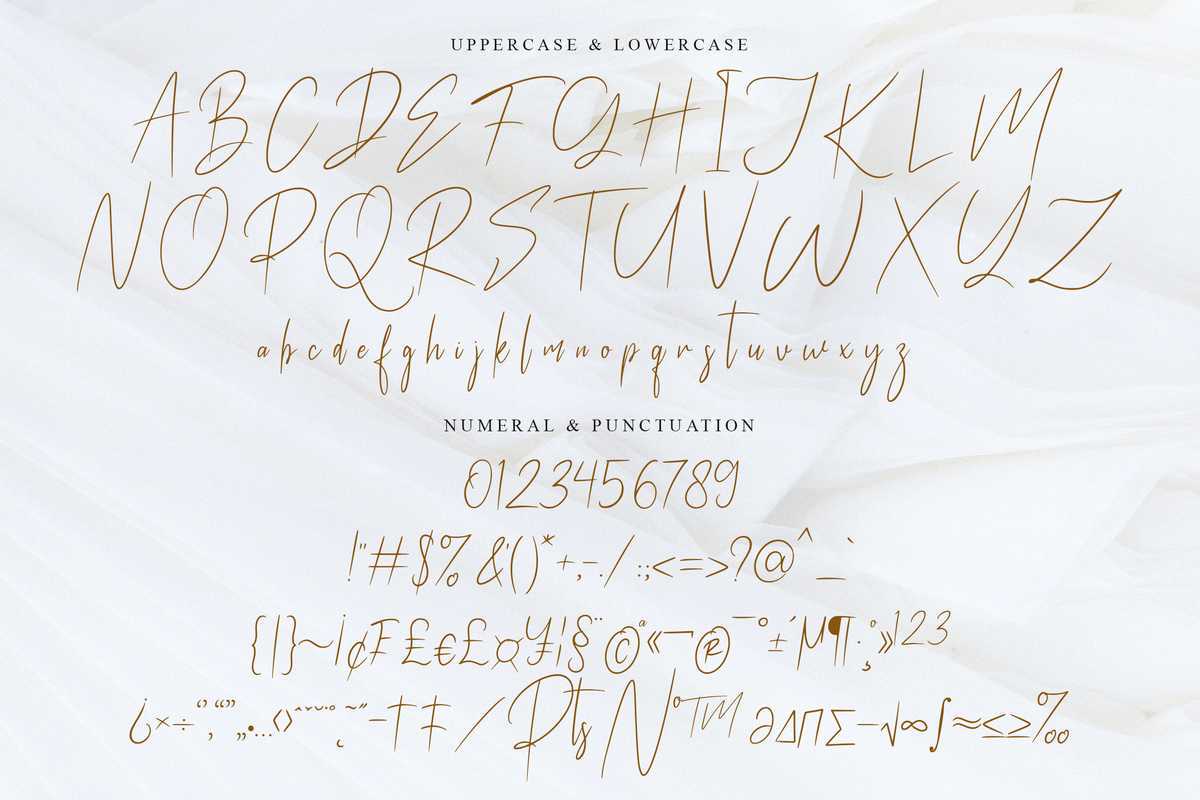 UPPERCASE & LOWERCASE
ABCDEFGHIJKLM
NOPQRSTUVWXYZ
abcdefghijklmnopqrstuvwxyz
NUMERAL & PUNCTUATION
0123456789
!"#$%&'()*+,-./:;<=>?@^_`
{|}~¡¢₣₤€£¤¥¦§¨©ª«¬®¯°±´µ¶·¸º»¹²³
¿×÷‘’‚“”„•…‹›ˆˇ˘˙˚˛˜˝–†‡⁄₧№™∂∆∏∑−√∞∫≈≤≥‰